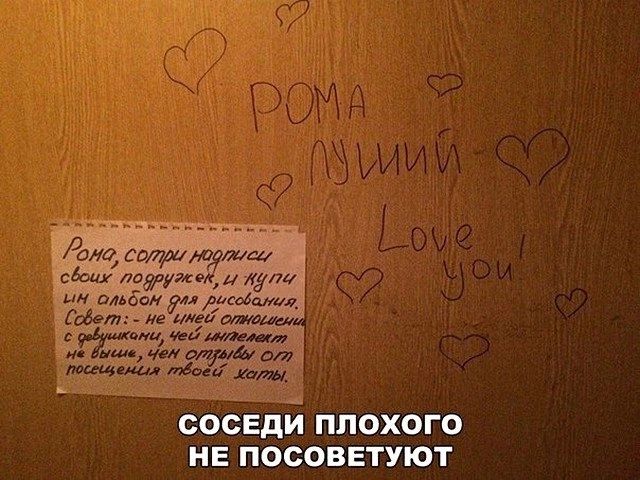 РОМА
ЛУШИЙ
Love
you!
Рома, сотри надписи
своих подружек, и купи
им альбом для рисования.
Совет: - не имей отношений
с девушками, чей интелект
не выше, чем отзывы от
посещения твоей хаты.
СОСЕДИ ПЛОХОГО
НЕ ПОСОВЕТУЮТ